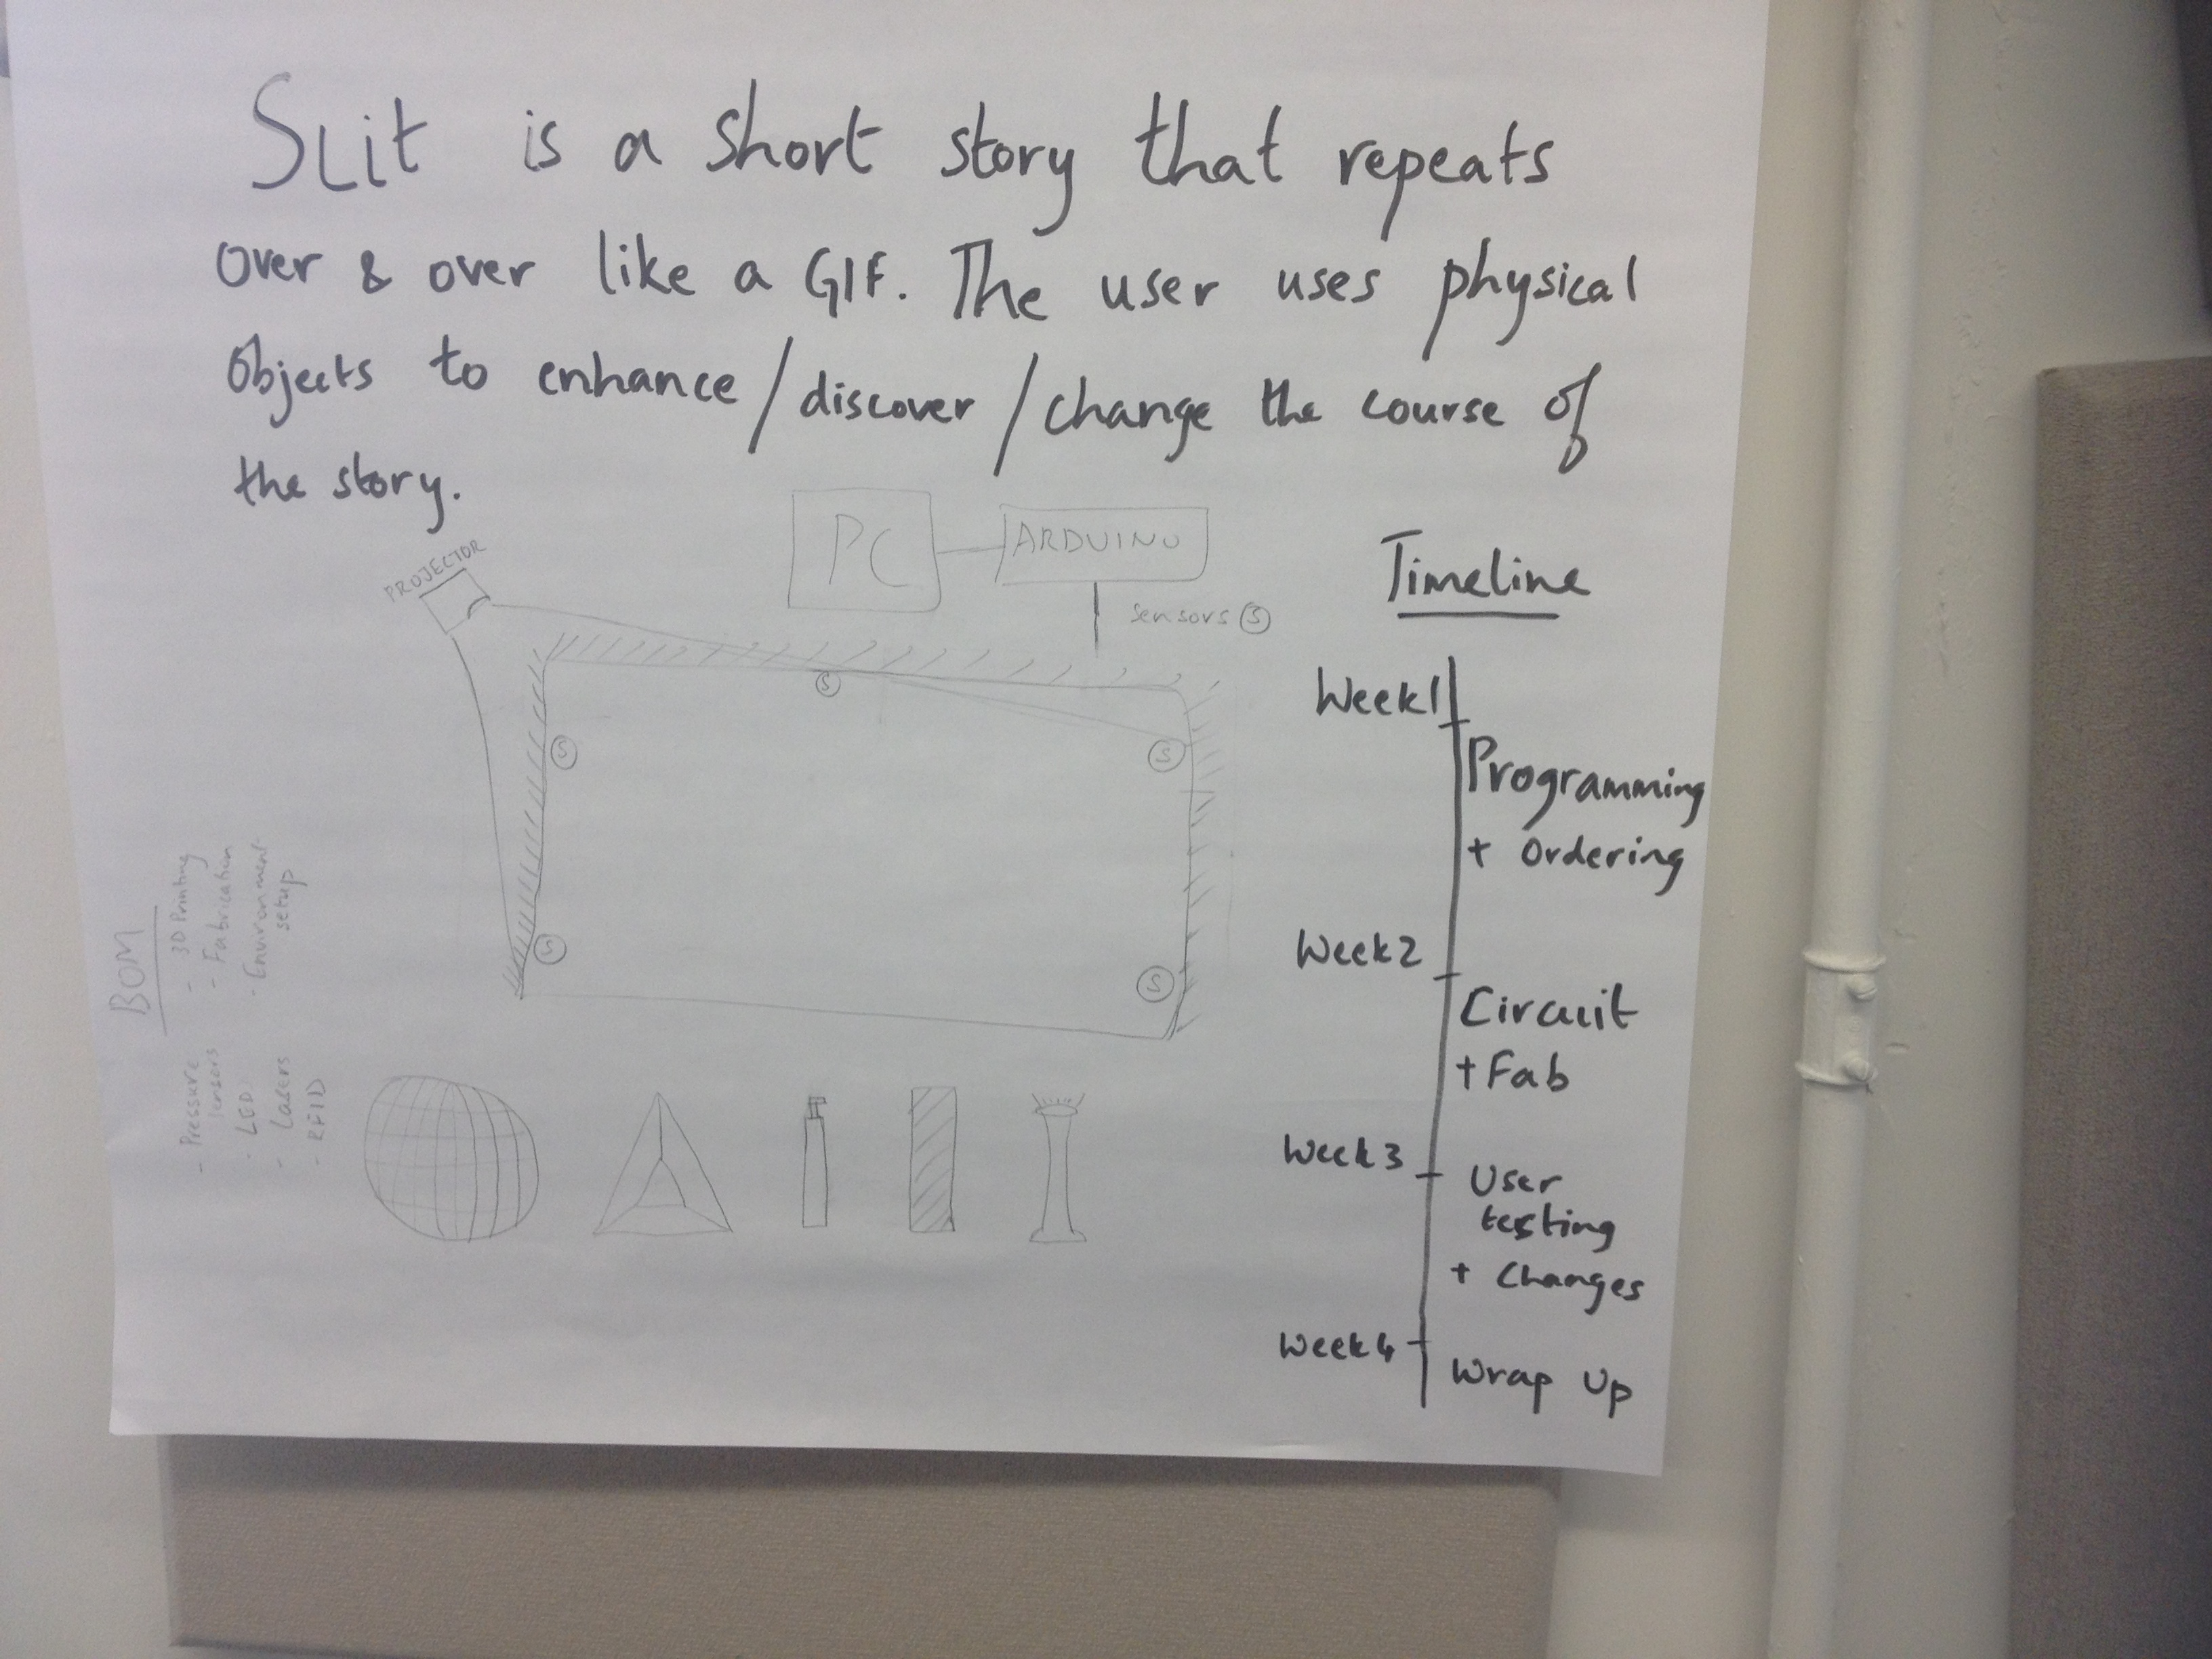 SLit is a short story that repeats
over & over like a GIF. The user uses physical
objects to enhance / discover / change the course of
the story.
PROJECTOR
PC
ARDUINO
Sensors S
S
S
S
S
S
BOM
- 3D Printing
- Fabrication
- Environment
setup
- Pressure
sensors
- LED
- Lasers
- RFID
Timeline
Week1
Programming
+ Ordering
Week2
Circuit
+ Fab
Week3
User
testing
+ Changes
Week4
Wrap Up